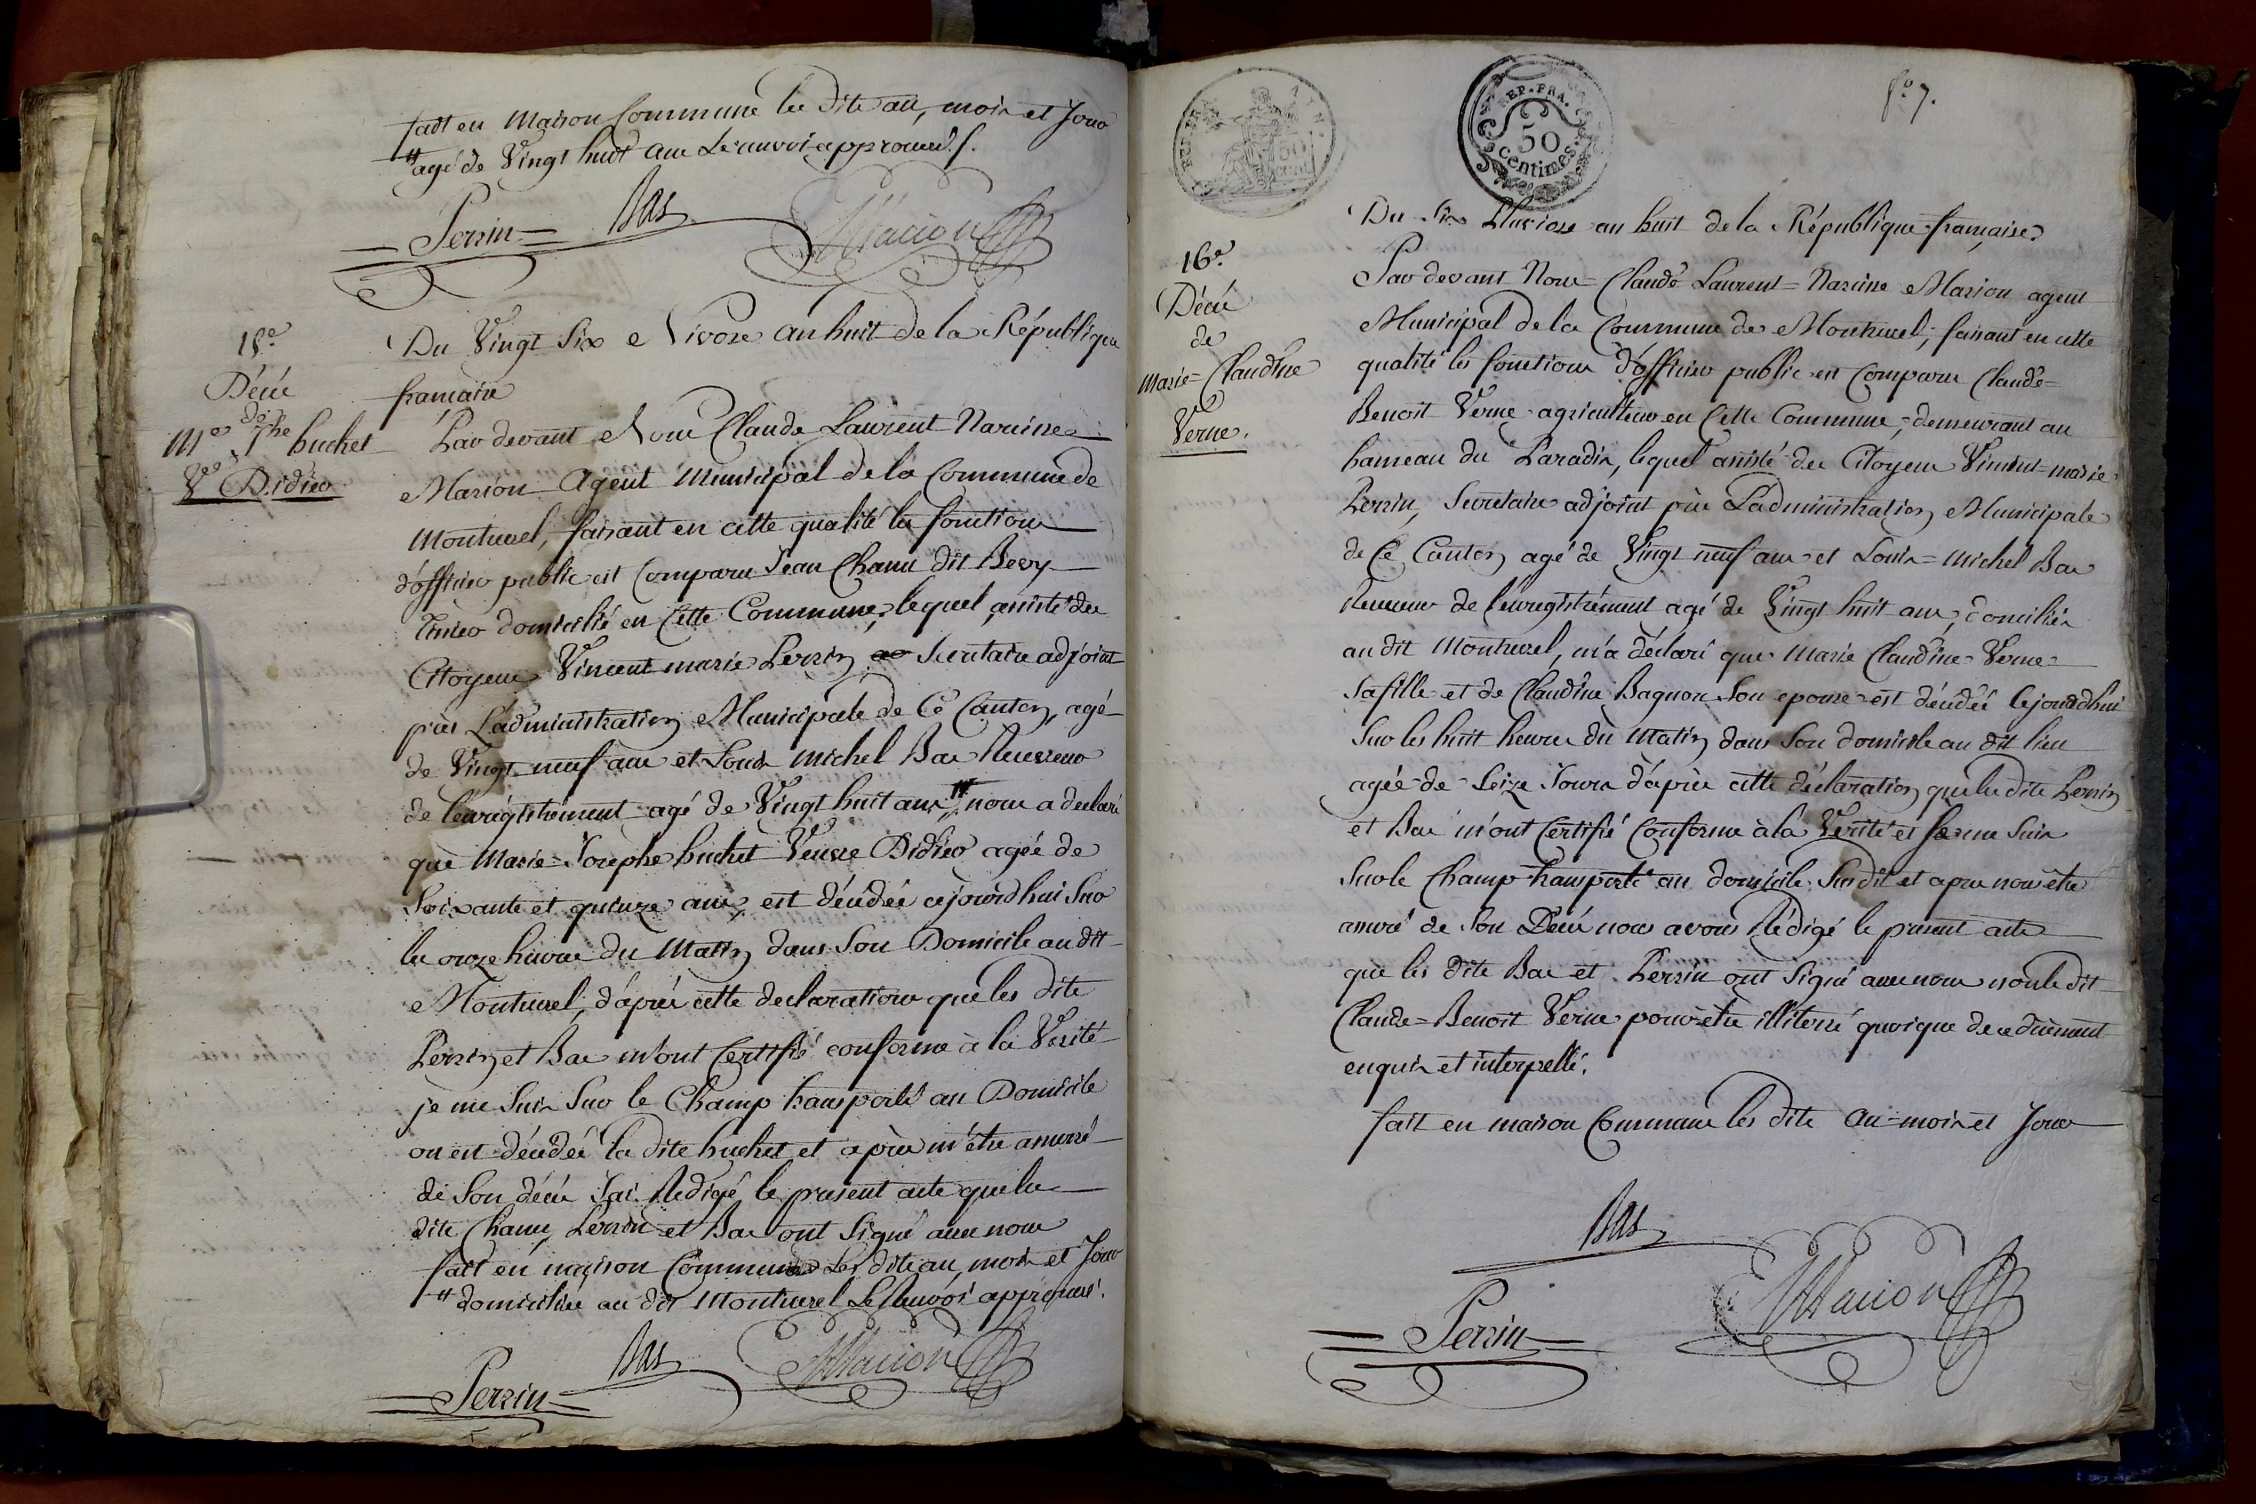 fait en maison Commune les dits an, mois et Jour
# agé de Vingt huit ans Le renvoi approuvé.
Perrin Bas Marion
15e.
Décès
de
Me. Jphe huchet
Ve. Didier
Du Vingt Six Nivose an huit de la République
française
Par devant Nous Claude Laurent Narcisse
Marion Agent Municipal de la Commune de
Montluel, faisant en cette qualité les fonctions
d'officier public est Comparu Jean Chanu dit Bevy
domicilié en Cette Commune, lequel assisté des
Citoyens Vincent marie Perrin Secretaire adjoint
près L'administration Municipale de Ce Canton, agé
de Vingt neuf ans et Louis Michel Bas Receveur
de l'enrégistrément agé de Vingt huit ans # nous a declaré
que Marie=Josephe huchet Veuve Didier agée de
Soixante et quinze ans, est décédée cejourd'hui Sur
les onze heures du Matin dans Son Domicile au dit
Montluel, d'après cette declaration que les dits
Perrin et Bas m'ont Certifié conforme à la Verité
je me Suis Sur le Champ transporté au Domicile
ou est décédée la dite huchet et après m'être assuré
de Son décès J'ai Redigé le présent acte que les
dits Chanu, Perrin et Bas ont Signé avec nous
fait en maison Commune Les dits an, mois et Jour
# domiciliés au dit Montluel Le Renvoi approuvé.
Perrin Bas Marion
REP. FRA.
50
centimes.
fo. 7.
16e.
Décès
de
Marie=Claudine
Verne.
Du Six Pluviose an huit de la République française.
Par devant Nous Claude Laurent=Narcisse Marion agent
Municipal de la Commune de Montluel, faisant en cette
qualité les fonctions d'officier public est Comparu Claude=
Benoit Verne agriculteur en Cette Commune, demeurant au
hameau du Paradis, lequel assisté des Citoyens Vincent=marie
Perrin, Secretaire adjoint près L'administration Municipale
de Ce Canton agé de Vingt neuf ans et Louis=Michel Bas
Receveur de l'enregistrément agé de Vingt huit ans, domiciliés
au dit Montluel, m'a déclaré que Marie Claudine Verne
Sa fille et de Claudine Bagnon Son epouse est décédée cejourdhui
Sur les huit heures du Matin dans Son domicile au dit lieu
agée de Seize Jours d'après cette déclaration que les dits Perrin
et Bas m'ont Certifié Conforme à la Verité et je me Suis
Sur le Champ transporté au domicile Susdit et apres nous être
assuré de Son Décès nous avons Rédigé le présent acte
que les dits Bas et Perrin ont Signé avec nous non le dit
Claude=Benoit Verne pour être illiterré quoique de ce duement
enquis et interpellé.
fait en maison Commune les dits an mois et Jour
Bas
Perrin Marion